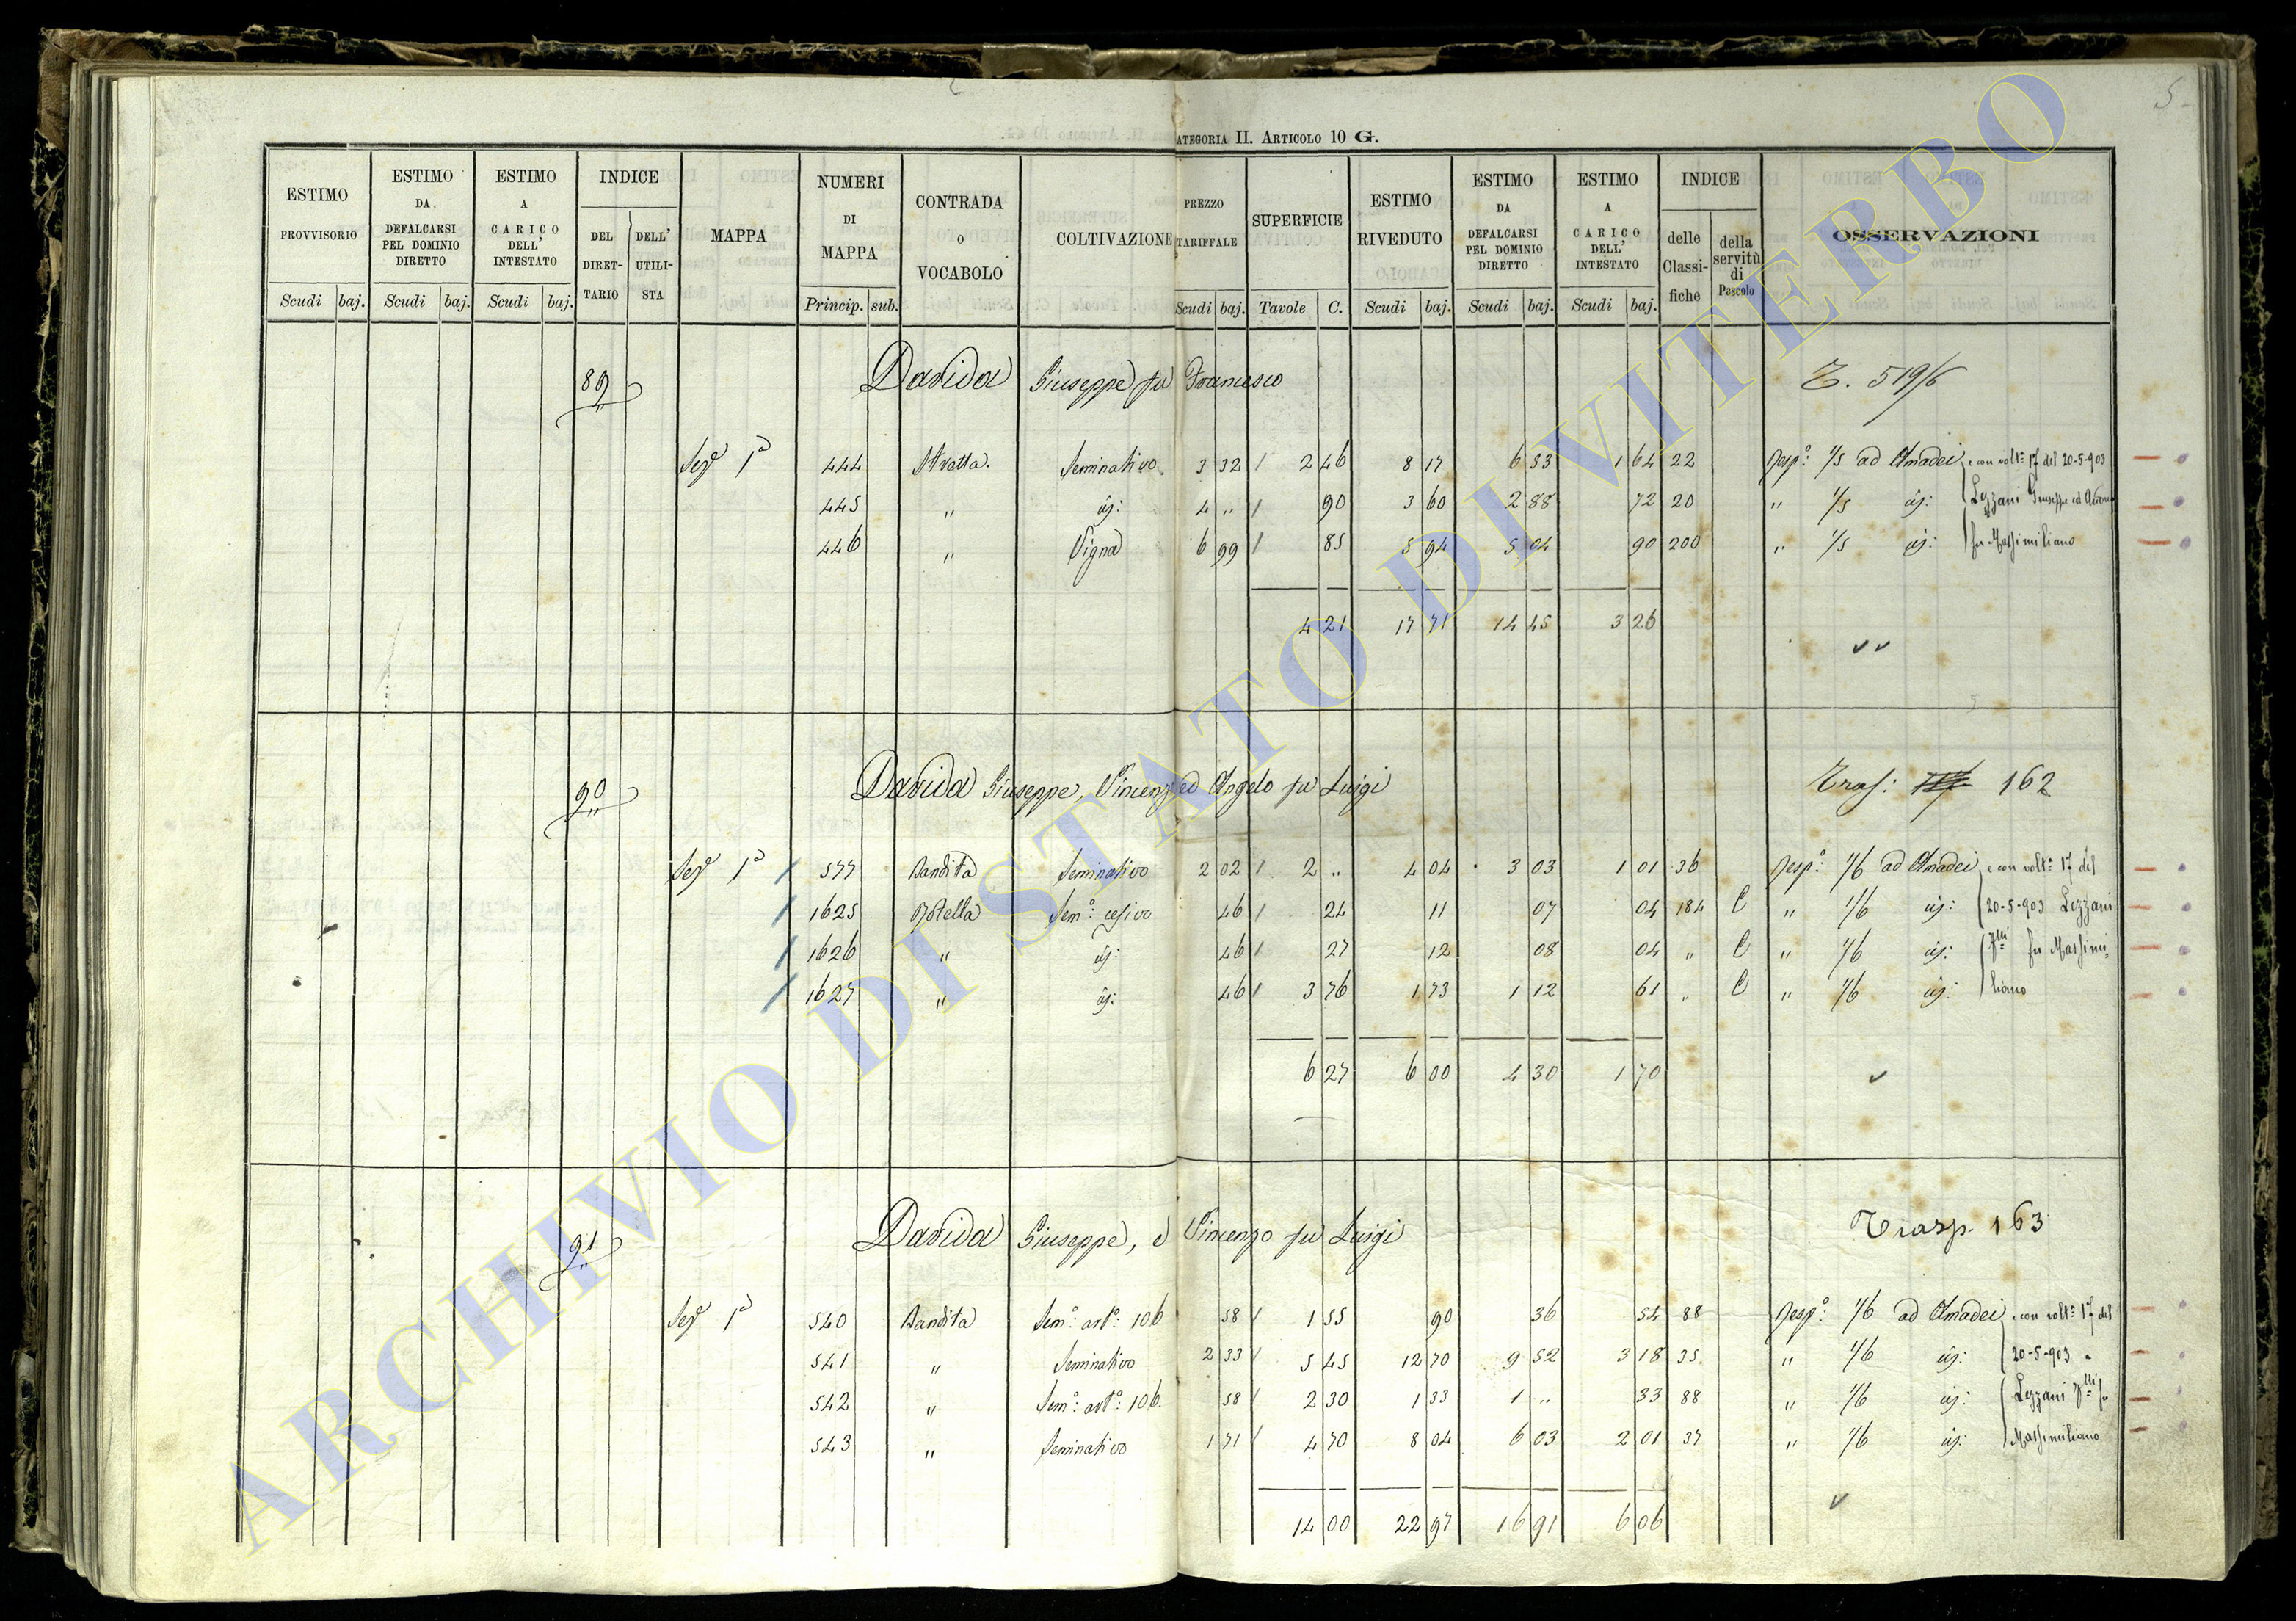 5
ATEGORIA II. ARTICOLO 10 G.
ESTIMO PROVVISORIO Scudi baj. ESTIMO DA DEFALCARSI PEL DOMINIO DIRETTO Scudi baj. ESTIMO A CARICO DELL' INTESTATO Scudi baj. INDICE DEL DIRETTARIO DELL' UTILISTA MAPPA NUMERI DI MAPPA Princip. sub. CONTRADA O VOCABOLO COLTIVAZIONE PREZZO TARIFFALE Scudi baj. SUPERFICIE Tavole C. ESTIMO RIVEDUTO Scudi baj. ESTIMO DA DEFALCARSI PEL DOMINIO DIRETTO Scudi baj. ESTIMO A CARICO DELL' INTESTATO Scudi baj. INDICE delle Classifiche della servitù di Pascolo OSSERVAZIONI
89 Davida Giuseppe fu Francesco T. 519/6
Sezᵉ 1ª 444 Seminativo 3 32 / 2 46 8 17 6 53 1 64 22 Resp: 1/5 ad Amadei e con voltᵃ 17 del 20-5-903
445 " id: 4 " / 90 3 60 2 88 72 20 " 1/5 id: Lezzani Giuseppe ed
446 " Vigna 6 99 / 85 5 94 5 04 90 200 " 1/5 id: fu Massimiliano
4 21 17 71 14 45 3 26
90 Davida Giuseppe, Vincenzo ed Angelo fu Luigi Trasp: 162
Sezᵉ 1ª 577 Bandita Seminativo 2 02 / 2 " 4 04 3 03 1 01 36 Resp: 1/6 ad Amadei e con voltᵃ 17 del
1625 Semᵒ: cesivo 46 / 24 11 07 04 184 C " 1/6 id: 20-5-903 Lezzani
1626 " id: 46 / 27 12 08 04 " C " 1/6 id: Flli fu Massimi=
1627 " id: 46 / 3 76 1 73 1 12 61 " C " 1/6 id: liano
6 27 6 00 4 30 1 70
91 Davida Giuseppe, e Vincenzo fu Luigi Trasp. 163
Sezᵉ 1ª 540 Bandita Semᵒ: artᵒ: 106 58 / 1 55 90 36 54 88 Resp: 1/6 ad Amadei e con voltᵃ 17 del
541 " Seminativo 2 33 / 5 45 12 70 9 52 3 18 35 " 1/6 id: 20-5-903 a
542 " Semᵒ: artᵒ: 106 58 / 2 30 1 33 1 " 33 88 " 1/6 id: Lezzani Flli fu
543 " Seminativo 1 71 / 4 70 8 04 6 03 2 01 37 " 1/6 id: Massimiliano
14 00 22 97 16 91 6 06
ARCHIVIO DI STATO DI VITERBO